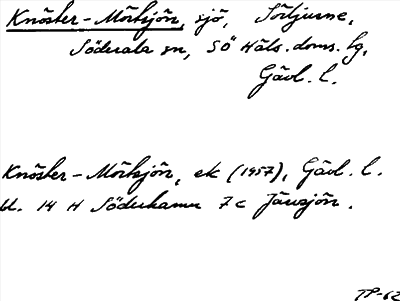 Knösler-Mörksjön, sjö, Sörljusne,
Söderala sn, SÖ Häls. doms. tg,
Gävl. l.
Knösler-Mörksjön, ek (1957), Gävl. l.
bl. 14 H Söderhamn 7c Järvsjön.
TP-62